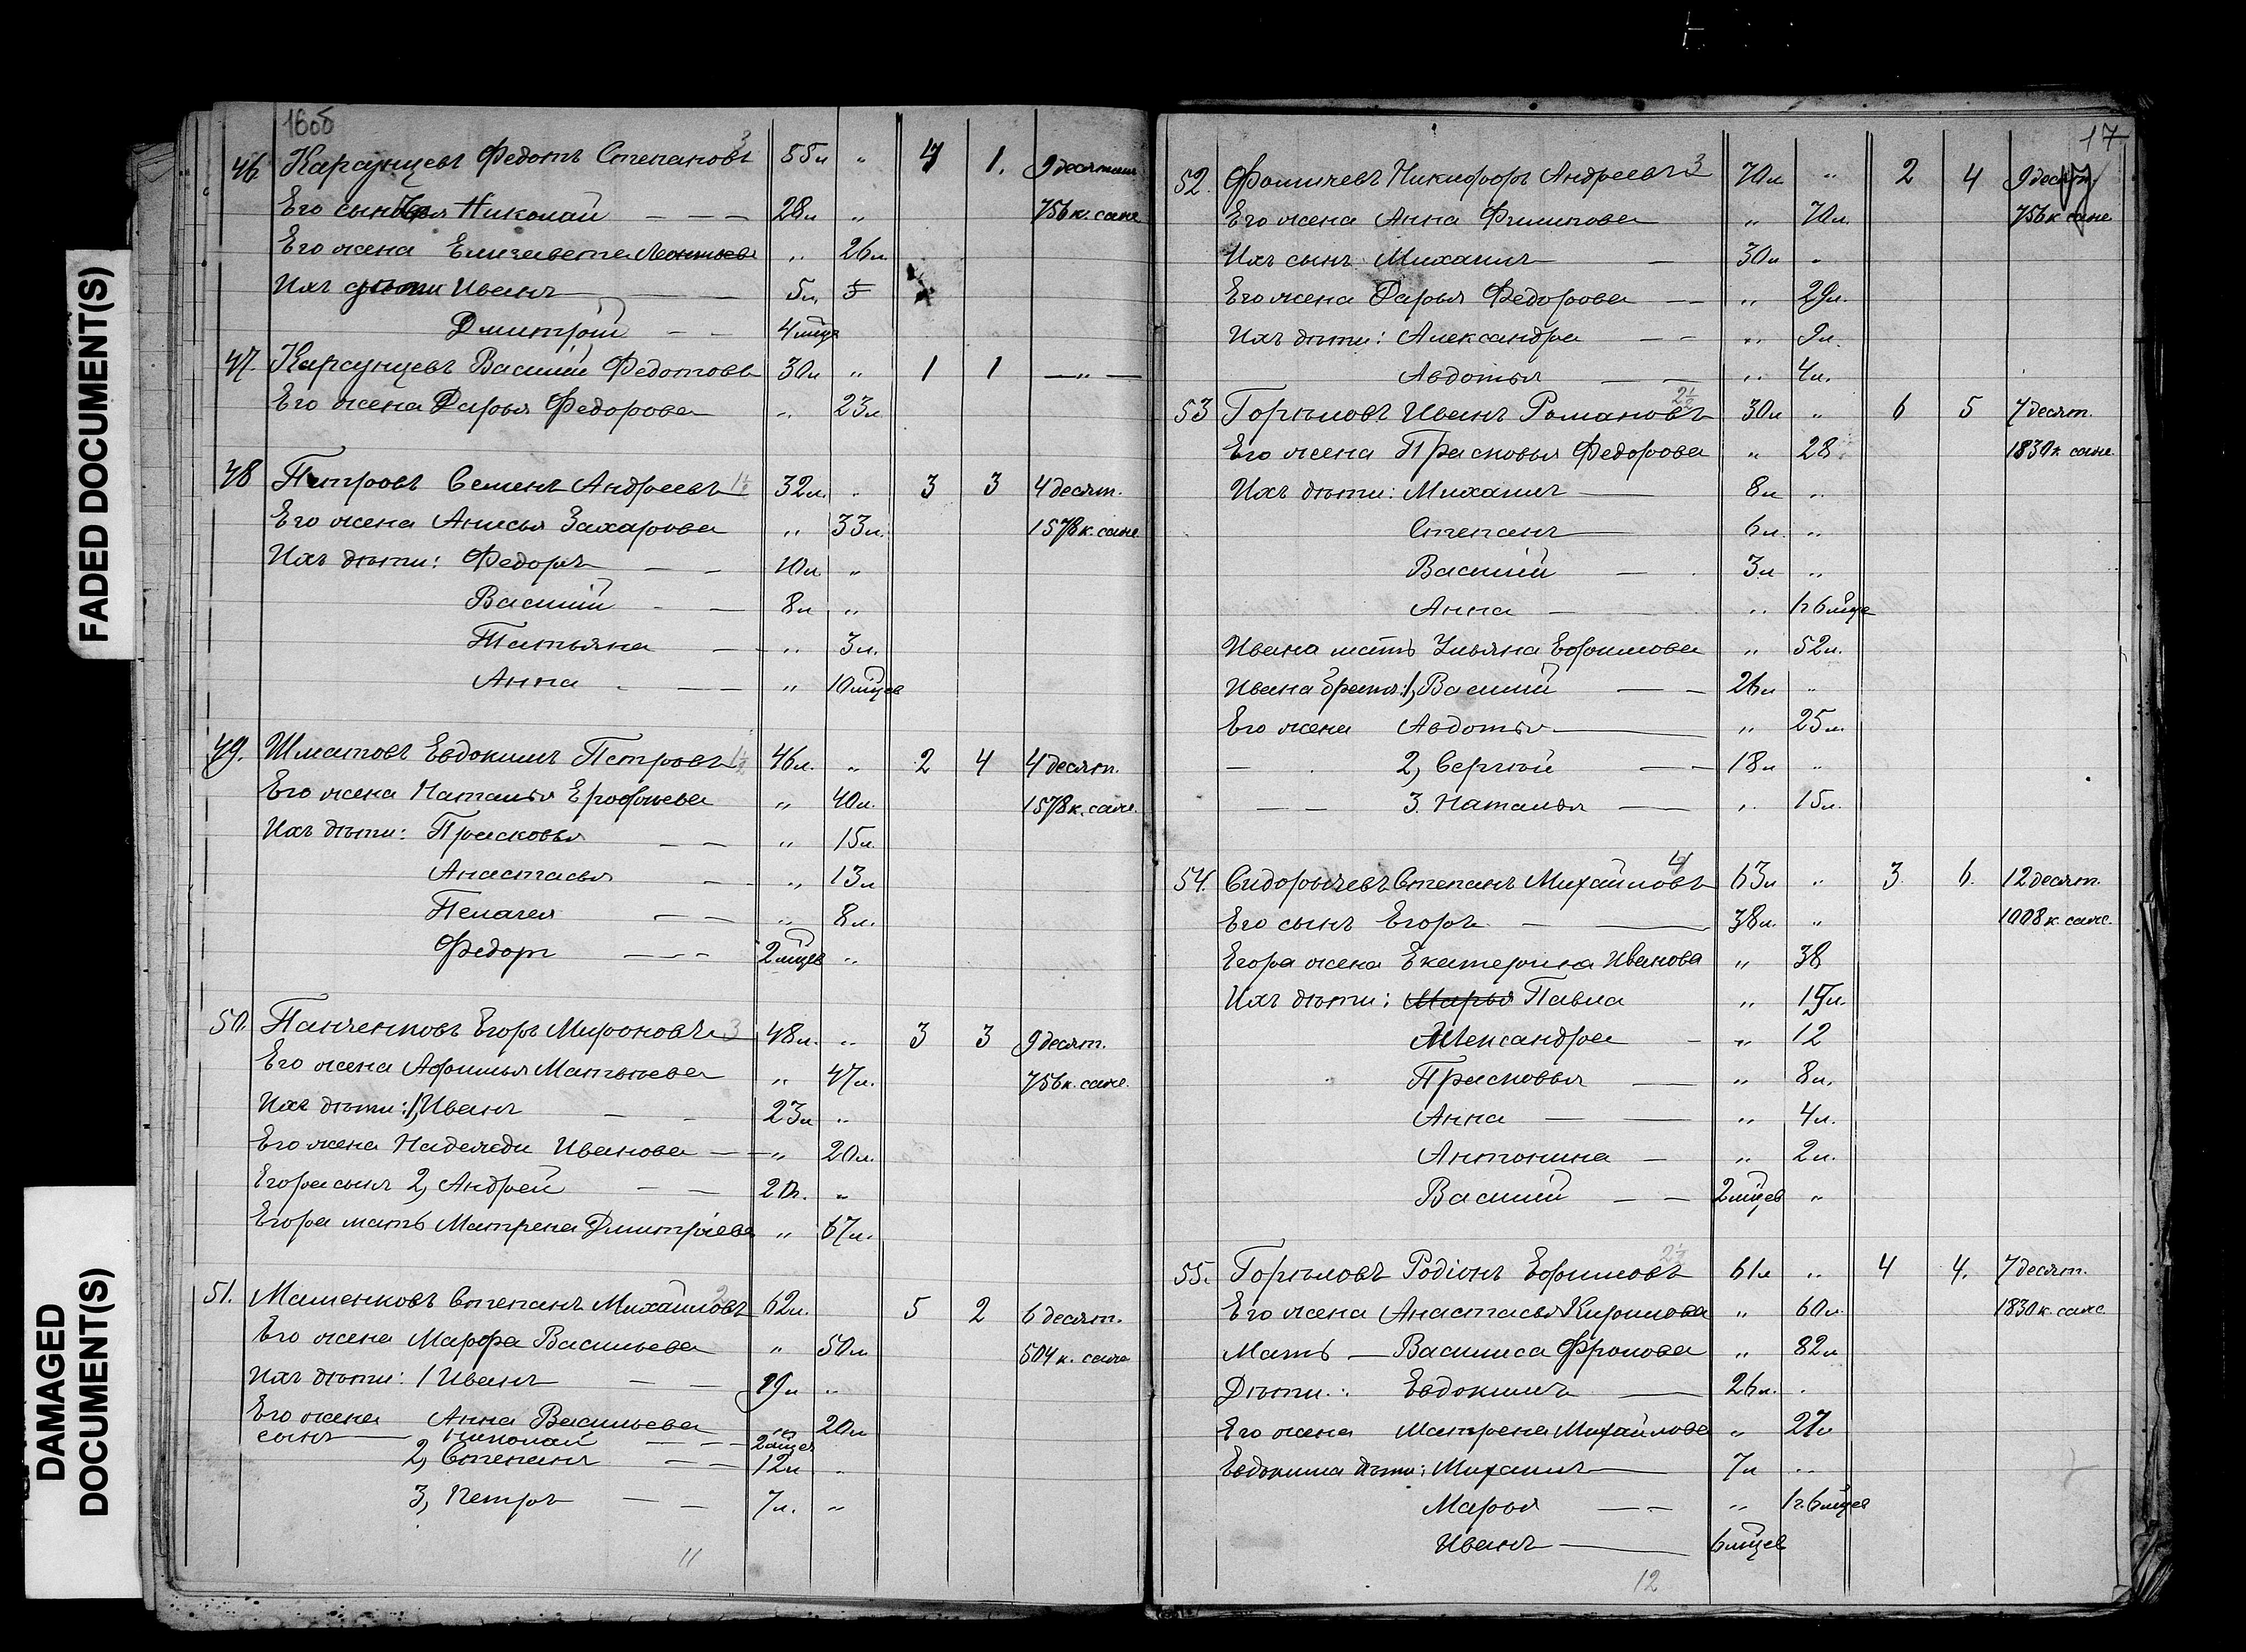 FADED DOCUMENT(S)
DAMAGED DOCUMENT(S)
16об
46. Карсунцевъ Федотъ Степановъ 3 55л " 4 1. 9 десятин
Его сынъ Николай — — — 28л " 756 к. саж
Его жена Елизавета Леонтьева " 26л
Ихъ дѣти Иванъ — — 5л
Дмитрій — — 4 мѣця
47. Карсунцевъ Василій Федотовъ 30л " 1 1 — " —
Его жена Дарья Федорова " 23л
48 Петровъ Семенъ Андреевъ 1½ 32л " 3 3 4 десят.
Его жена Анисья Захарова " 33л. 1578 к. саж
Ихъ дѣти: Федоръ — — 10л "
Василій — — 8л "
Татьяна — — " 3л.
Анна — — " 10 мѣцев
49. Шматовъ Евдокимъ Петровъ 1½ 46л. " 2 4 4 десят.
Его жена Наталья Ерофѣева " 40л. 1578 к. саж.
Ихъ дѣти: Прасковья — — " 15л.
Анастасья — — " 13л
Пелагея — — " 8л.
Федоръ — — — 2 мѣцев "
50. Панченковъ Егоръ Мироновъ 3 48л. " 3 3 9 десят.
Его жена Афимья Матвѣева " 47л. 756 к. саж.
Ихъ дѣти: 1, Иванъ — — 23л "
Его жена Надежда Иванова — — " 20л.
Егора сынъ 2, Андрей — — "
Егора мать Матрена Дмитріева " 67л.
51. Машенковъ Степанъ Михайловъ 2 62л. 5 2 6 десят.
Его жена Марфа Васильева " 50л 504 к. саж
Ихъ дѣти: 1 Иванъ — — "
Его жена Анна Васильева " 20л
сынъ — Николай — — — 2 мѣцев
2, Степанъ — — 12л "
3, Петръ — — 7л. "
11
17
52. Фомичевъ Никифоръ Андреевъ 3 70л " 2 4 9 десят.
Его жена Анна Филипова " 70л. 756 к саж
Ихъ сынъ Михаилъ — 30л "
Его жена Дарья Федорова — — " 29л.
Ихъ дѣти: Александра — — " 9л.
Авдотья — — " 4л.
53 Горѣловъ Иванъ Романовъ 2½ 30л " 6 5 7 десят.
Его жена Прасковья Федорова " 28 1830 к саж.
Ихъ дѣти: Михаилъ — 8л "
Степанъ — 6л. "
Василій — 3л "
Анна — " 1г. 6 мѣце
Ивана мать Ульяна Ефимова " 52л.
Ивана братъ: 1, Василій — — 26л "
Его жена Авдотья — " 25л.
— 2, Сергѣй — — 18л "
— — 3. Наталья — " 15л.
54. Сидорычевъ Степанъ Михайловъ 4 63л " 3 6. 12 десят.
Его сынъ Егоръ — — 38л. " 1008 к. саж.
Егора жена Екатерина Иванова " 38
Ихъ дѣти: Марья Павла " 15л.
Александра — " 12
Прасковья — " 8л.
Анна — — " 4л.
Антонина — " 2л.
Василій — — 2 мѣцев "
55. Горѣловъ Родіонъ Ефимовъ 2½ 61л " 4 4. 7 десят.
Его жена Анастасья Кирилова " 60л. 1830 к саж
Мать — Василиса Фролова " 82л
Дѣти: Евдокимъ — 26л. "
Его жена Матрена Михайлова " 27л
Евдокима дѣти: Михаилъ — 7л "
Марья — — " 1г. 6 мѣцев
Иванъ — 6 мѣцев
12